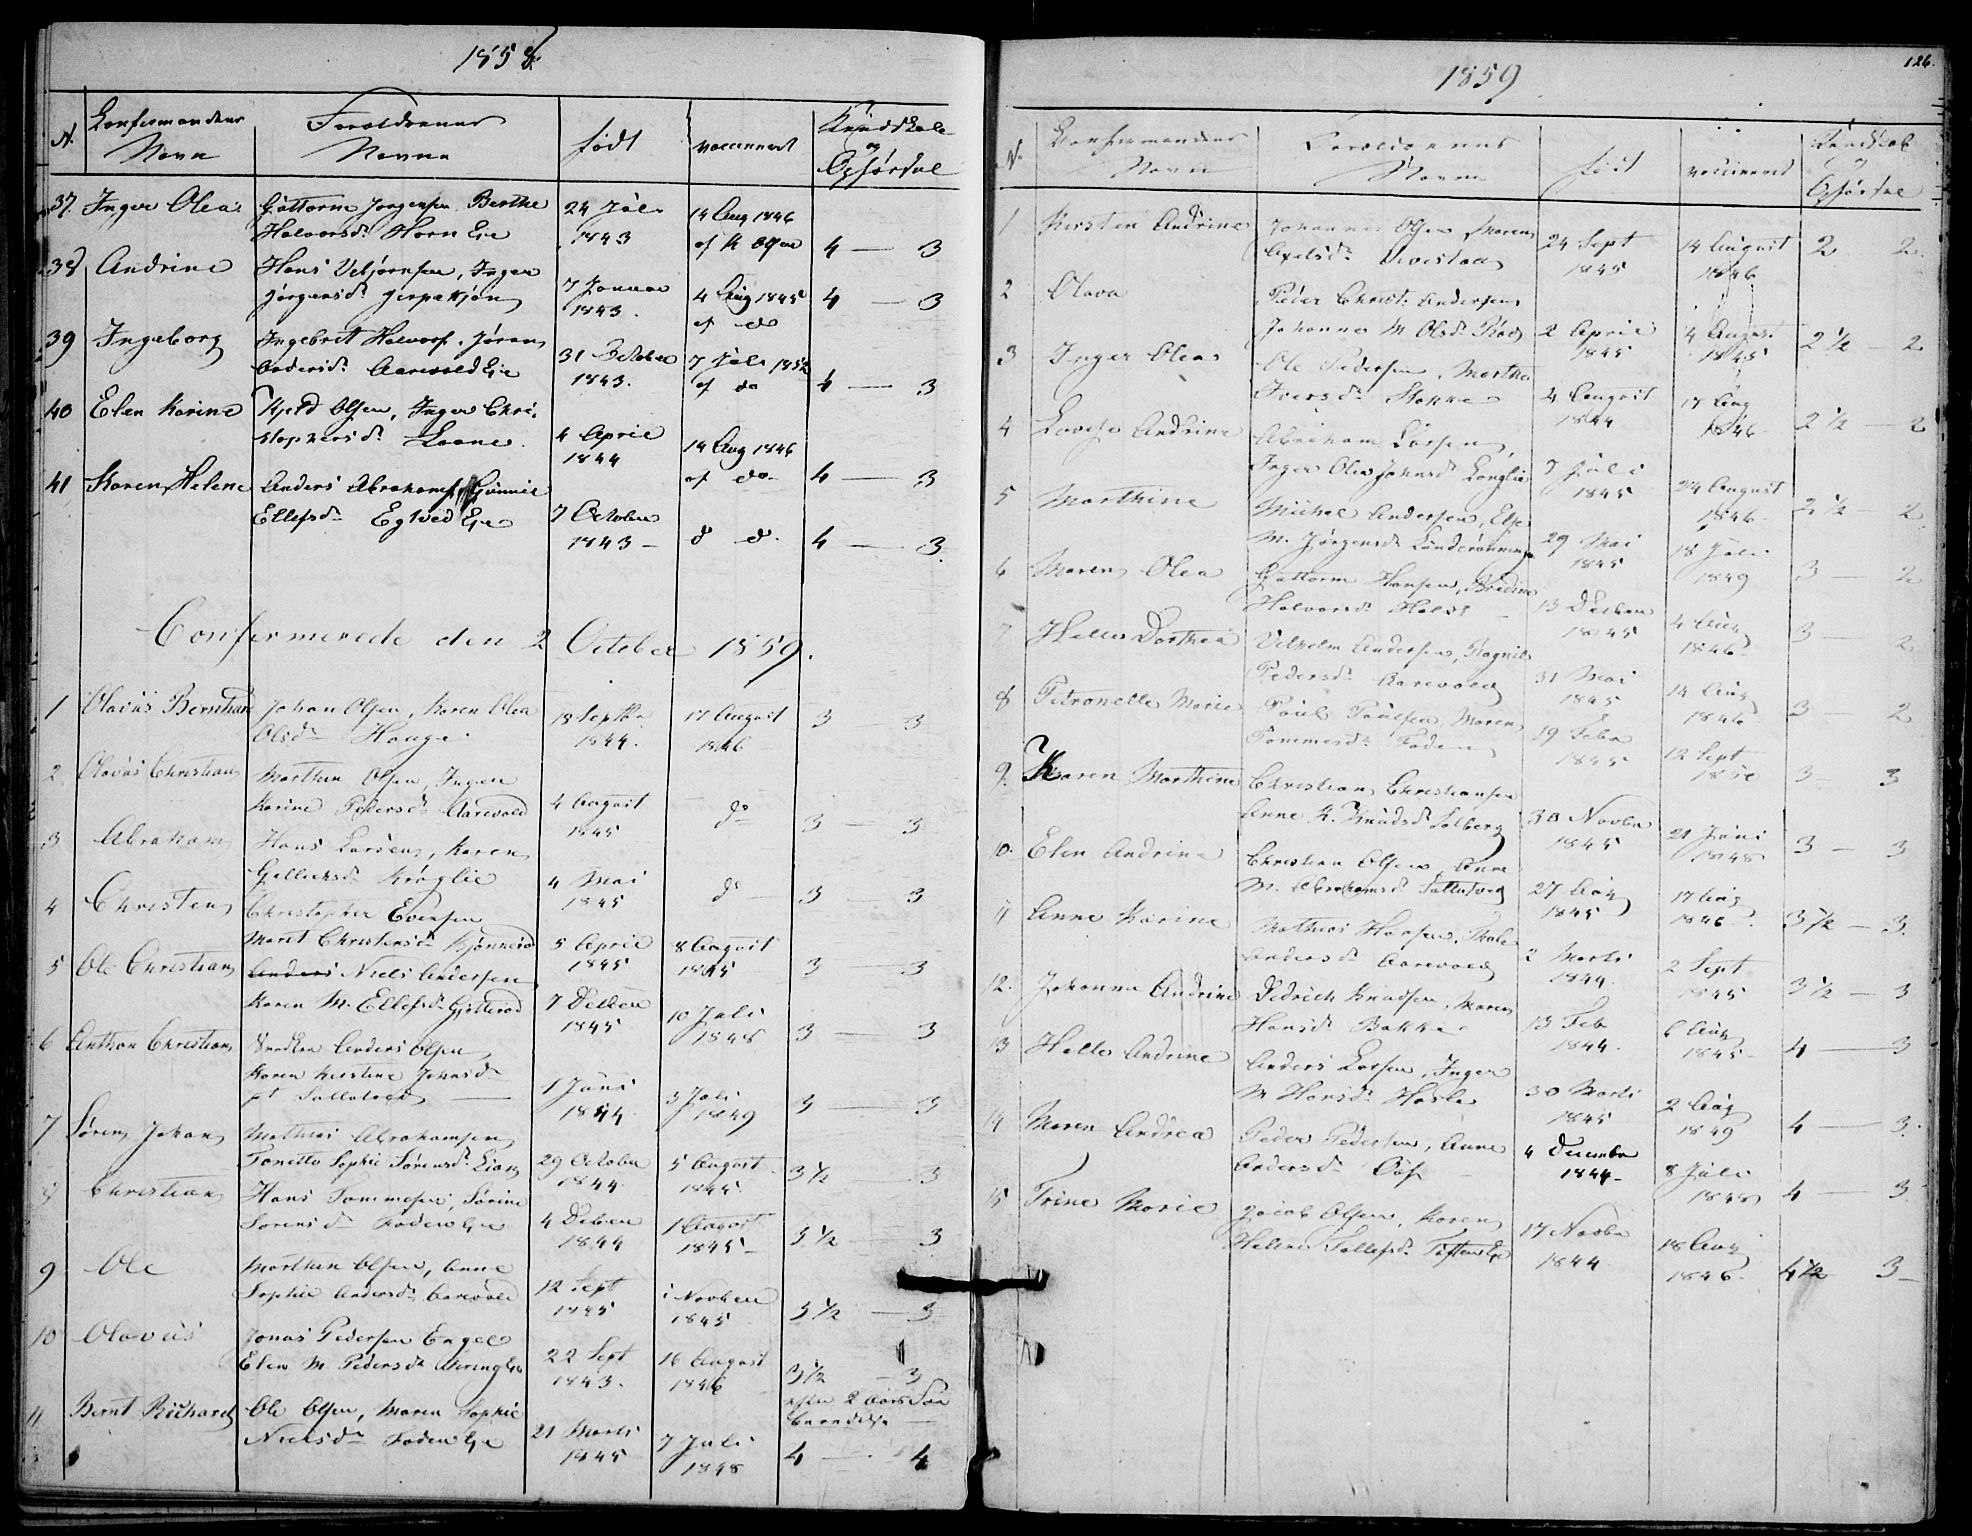 1858
N. Confirmandens Navn Forældrenes Navne født vaccineret Kundskab og Opførsel
37. Inger Olea Guttorm Jørgensen Berthe 24 Juli 14 Aug 1846
Halvorsdr Horn Eie 1843 af K Olsen 4 — 3
38 Andrine Hans Vebjørnsen, Inger
Jørgensdr 7 Januar 4 Aug 1845 4 — 3
1843. af do
39 Ingeborg Ingebret Halvors. Jøran
Andersdr Aarevold Eie 31 October 7 Juli 1852
1843. af do 4 — 3
40 Elen Karine Kjeld Olsen, Inger Chri-
stophersdr Laane. 4 April 14 Aug 1846
1844 af do 4 — 3
41 Karen Helene Anders Abrahams. Gunnil
Ellefsdr Egtved Eie 7 October
1843 — d do. 4 — 3.
Confirmerede den 2 October 1859.
1 Olaüs Bernthar Johan Olsen, Karen Olea 18 Septbr 17 August
Olsdr Hauge 1844. 1846 3 — 3
2 Olaüs Christian Marthin Olsen, Inger
Karine Pedersdr Aarevold 4 August do
1845 3 — 3
3 Abraham Hans Larsen, Karen
4 Mai do
1845 3 — 3
4 Christen Christopher Evensen
Marit Christensdr 5 April 8 August
1845 1845 3 — 3
5 Ole Christian Anders Niels Andersen
Karen M. Ellefsdr 7 Decber 10 Juli
1845 1848 3 — 3
6 Anthon Christian Anders Olsen
Karen Kirstine Johnsdr
1 Juni 3 Juli
1844. 1849 3 — 3
7 Søren Johan Mathias Abrahamsen
Tonette Sophie Sørensdr Lian 29 October 5 August
1844 1845 3 1/2 3
8 Christian Hans Tommesen, Sørine
Sørensdr Foden Eie 4 Decber 1 August
1844 1845 — 3 1/2 — 3
9 Ole Marthin Olsen, Anne
Sophie Andersdr Aarevold 12 Sept 1 Novber
1845 1845 3 1/2 — 3
10 Olavüs Jonas Pedersen Engel
Elen M Pedersdr 22 Sept 16 August
1843. 1846 3 1/2 — 3
efter 2 Aars
11 Bernt Richard Ole Olsen, Maren Sophie
Nielsdr Foden Eie 21 Marts 7 Juli
1845 1848 4 — 4
126.
1859
N. Confirmandens Navn Forældrenes Navne født vaccineret Kundskab og Opførsel
1 Kirsten Andrine Johannes Olsen Maren
Axelsdr 24 Sept 14 August 2 2.
1845 1846
2 Olava Peder Christ. Andersen
Johanne M Olsdr 2 April 4 August
1845 1845 2 1/2 — 2
3 Inger Olea Ole Pedersen, Marthe
Iversdr Stokke 4 August 17 Aug
1844 1846 2 1/2 — 2
4 Lovise Andrine Abraham Larsen,
Inger Olea Johnsdr Langlie 7 Juli 24 August
1845 1846 2 1/2 — 2
5 Marthine Michel Andersen, Else
M. Jørgensdr 29 Mai 18 Juli
1845 1849 3 — 2
6 Maren Olea Guttorm Hansen,
Halvorsdr 13 Decber 4 Aug
1845 1846 3 — 2
7 Helle Dorthea Vilhelm Andersen, Ragnil
Pedersdr Aarevold 31 Mai 14 Aug
1845 1846 3 — 2
8 Petronelle Marie Poul Poulsen, Maren
Tommesdr Foden 19 Febr 12 Sept
1845 1850 3 — 3
9. Karen Marthine Christian Christiansen
Anne K. Knudsdr Solberg 30 Novbr 21 Juni
1845 1848 3 — 3
10. Elen Andrine Christian Olsen Anne
M. Abrahamsdr 27 Aug 17 Aug
1845 1846 3 1/2 — 3.
11 Anne Karine Mathias Hansen,
Andersdr Aarevold 2 Marts 2 Sept
1844. 1845 3 1/2 — 3
12. Johanne Andrine Didrich Knudsen, Karen
Hansdr Bakke 13 Feb 6 Aug
1844. 1845 — 4 — 3
13 Helle Andrine Anders Larsen, Inger
M Hansdr Hasle 30 Marts 2 Aug
1845 1849 4 — 3.
14 Maren Andrea Peder Pedersen, Anne
Andersdr 4 Decembr 8 Juli
1844 — 1848 4 — 3
15 Trine Marie Jacob Olsen, Karen
Helene Tollefsdr 17 Novbr 18 Aug
1844 1846. 4 1/2 3 —